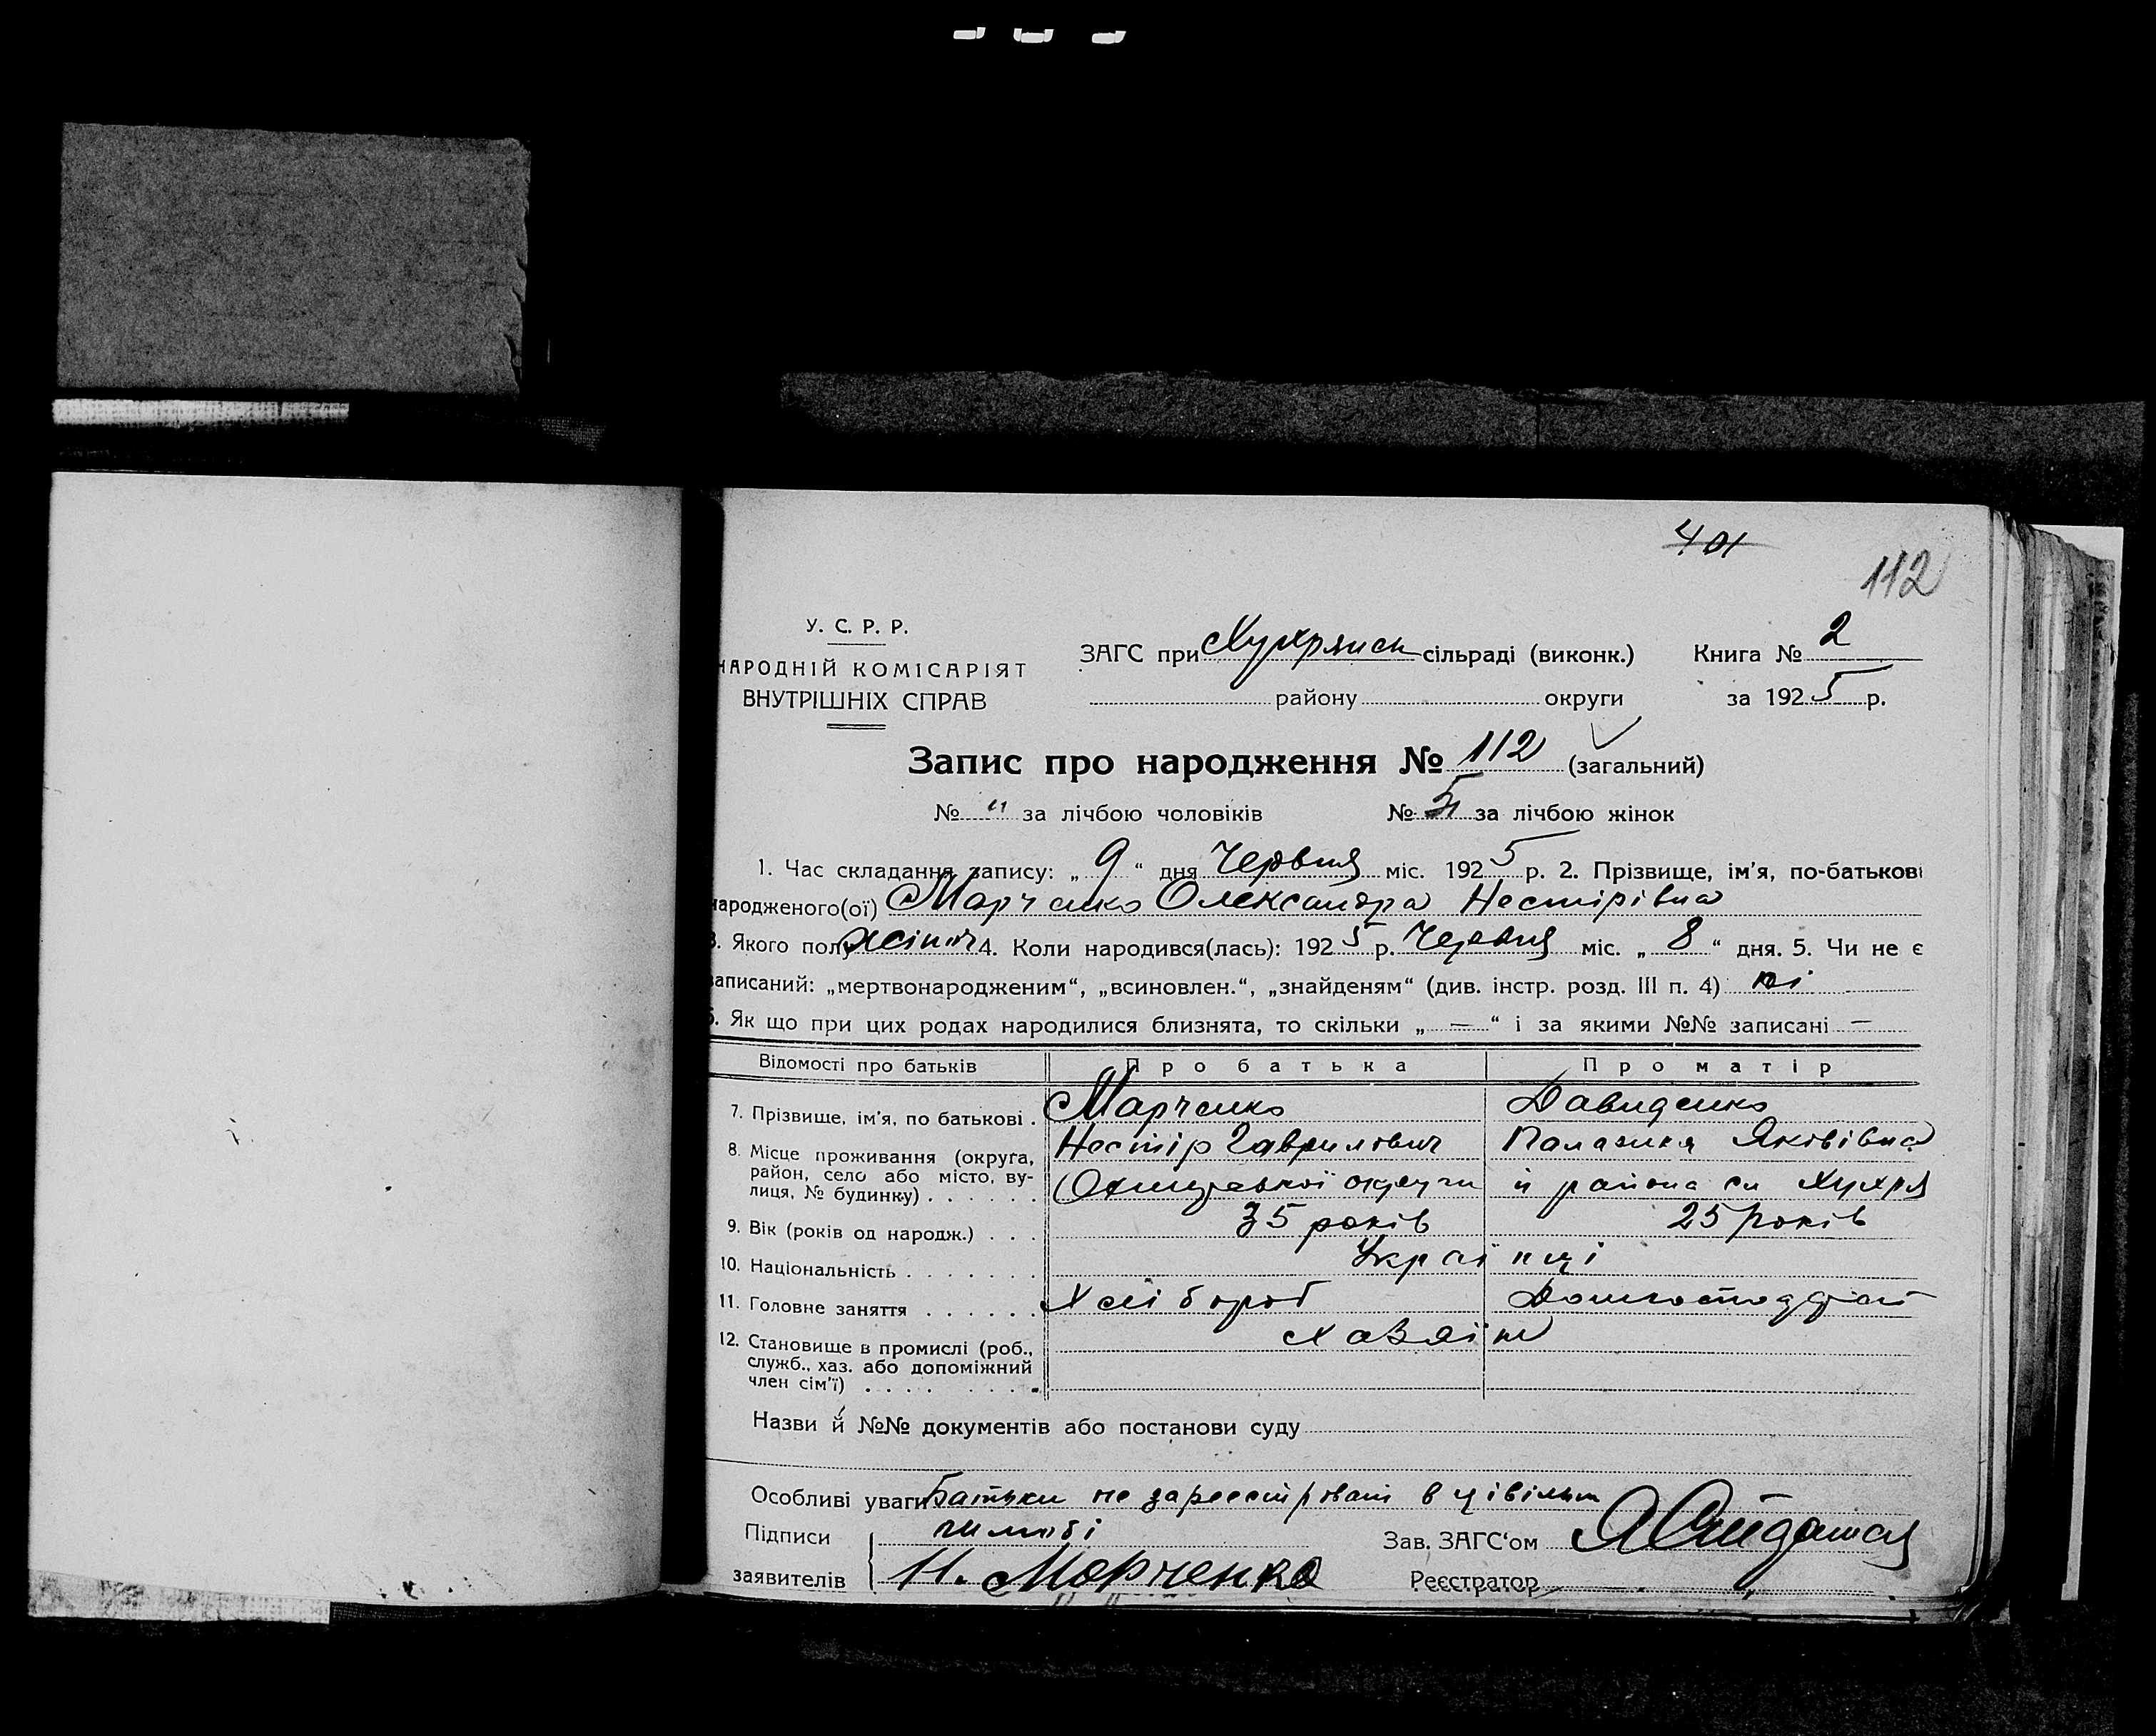 401
112
У. С. Р. Р.
НАРОДНІЙ КОМІСАРІЯТ
ВНУТРІШНІХ СПРАВ
ЗАГС при Хухрянськ сільраді (виконк.)
району округи
Книга № 2
за 1925 р.
Запис про народження № 112 (загальний)
№ " за лічбою чоловіків № 51 за лічбою жінок
1. Час складання запису: „ 9 “ дня Червня міс. 1925 р. 2. Прізвище, ім'я, по-батькові
народженого(ої) Марченко Олександра Нестірівна
3. Якого полу жіноч 4. Коли народився(лась): 1925 р. Червня міс. „ 8 “ дня. 5. Чи не є
записаний: „мертвонародженим“, „всиновлен.“, „знайденям“ (див. інстр. розд. III п. 4) ні
6. Як що при цих родах народилися близнята, то скільки „ — “ і за якими №№ записані —
Відомості про батьків Про батька Про матір
7. Прізвище, ім'я, по батькові . Марченко Давиденко
Нестір Гаврилович Палажка Яковівна
8. Місце проживання (округа, район, село або місто, ву-
лиця, № будинку) . . . . . . Охтирської округи й района сл Хухря
9. Вік (років од народж.) . . . 35 років 25 років
10. Національність . . . . . . . Українці
11. Головне заняття . . . . . . Хлібороб
12. Становище в промислі (роб., Хазяїн
служб., хаз. або допоміжний
член сім'ї) . . . . . . . .
Назви й №№ документів або постанови суду
Особливі уваги Батьки не зареєстровані в цівільн
шлюбі
Підписи
заявителів Н. Марченко
Зав. ЗАГС'ом
Реєстратор